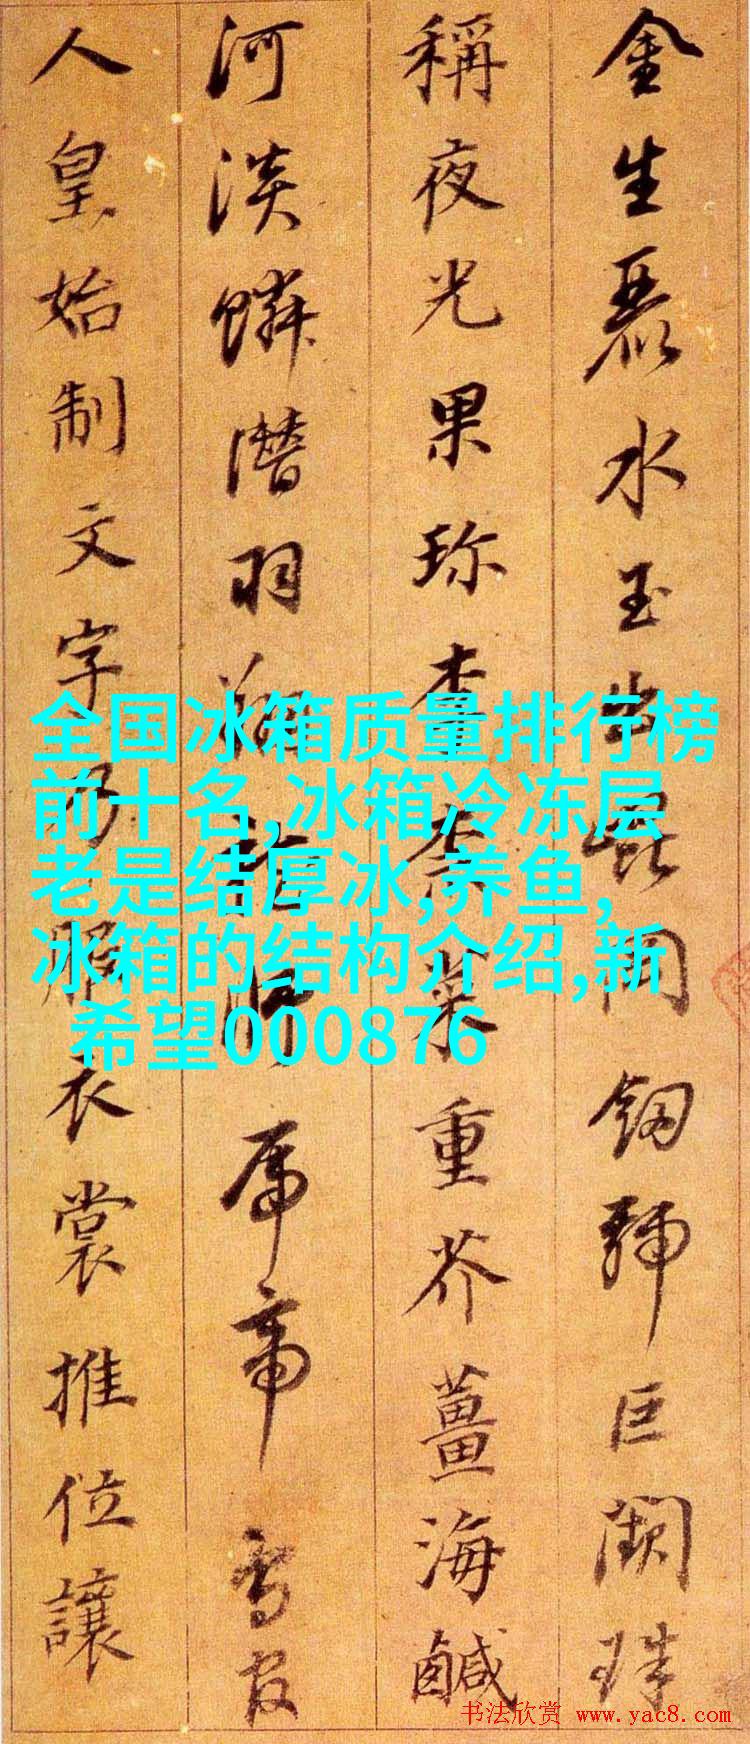 金生麗水玉出崐岡劒號巨闕珠
稱夜光果珎李柰菜重芥薑海鹹
河淡鱗潛羽翔龍師火帝鳥官
人皇始制文字乃服衣裳推位讓
全国冰箱质量排行榜
前十名,冰箱冷冻层
老是结厚冰,养鱼,
冰箱的结构介绍,新
希望000876
书法欣赏 www.yac8.com